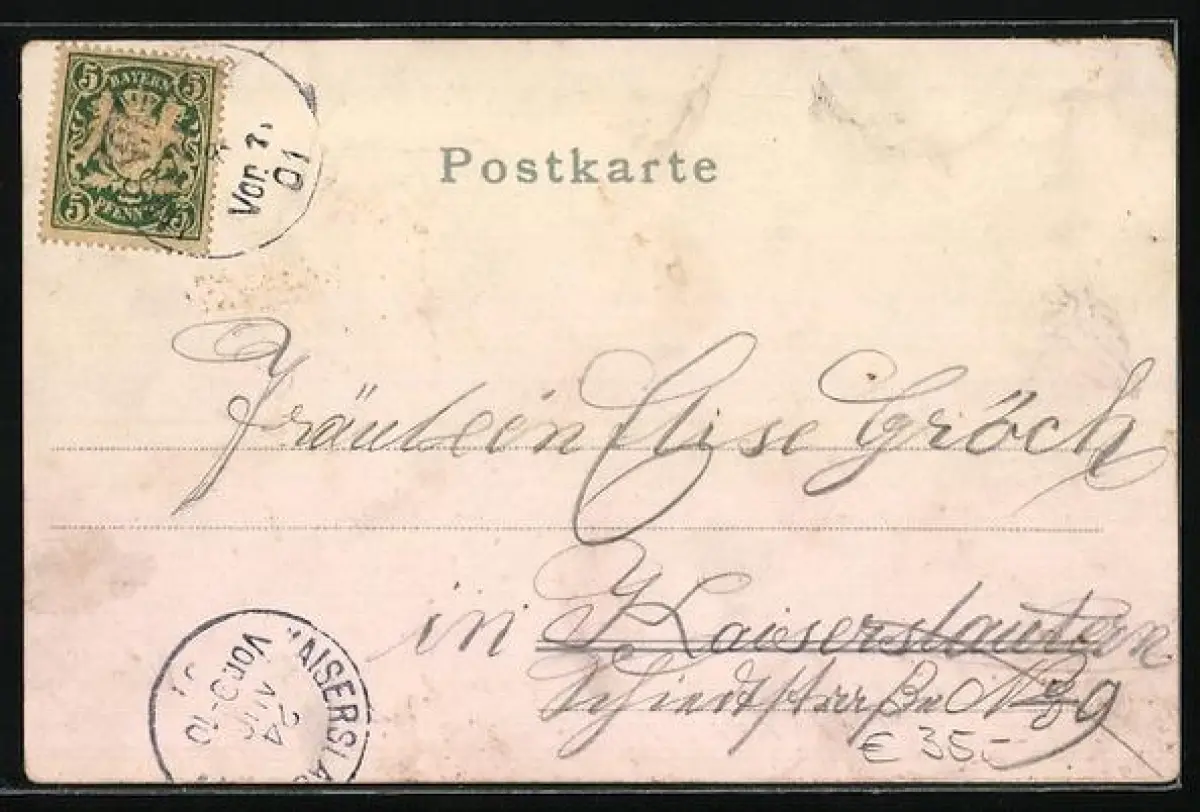 5 BAYERN 5
5 PFENNIG 5
Vor. 7.
01
Postkarte
Fräulein Elise Gröch
in Kaiserslautern
No 9
KAISERSLAU
24
Vor. 9-10
01
€ 35.-